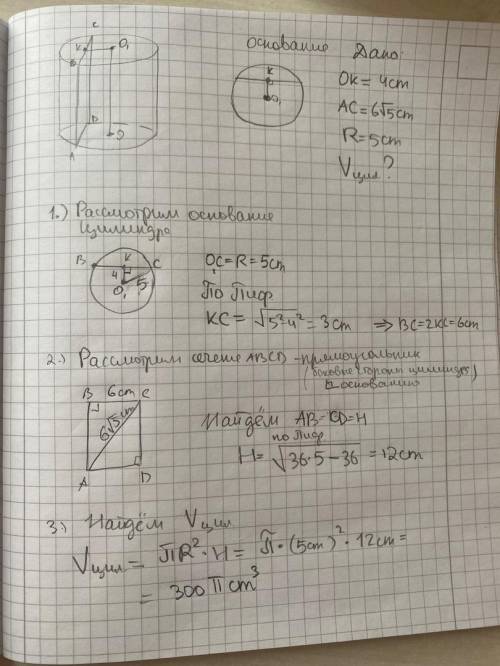 C
K O₁
B
D
O
A
основание
K
O₁
Дано:
OK = 4cm
AC = 6√5cm
R = 5cm
Vцил?
1.) Рассмотрим основание
цилиндра
B K C
4
O₁ 5
O₁C = R = 5cm
По Пиф
KC = √5²-4² = 3cm ⇒ BC = 2KC = 6cm
2.) Рассмотрим сечение ABCD - прямоугольник
(боковые стороны цилиндра
⊥ основанию)
B 6cm C
6√5cm
A D
Найдём AB = CD = H
по Пиф
H = √36·5-36 = 12cm
3.) Найдём Vцил
Vцил = πR²·H = π·(5cm)²·12cm =
= 300πcm³